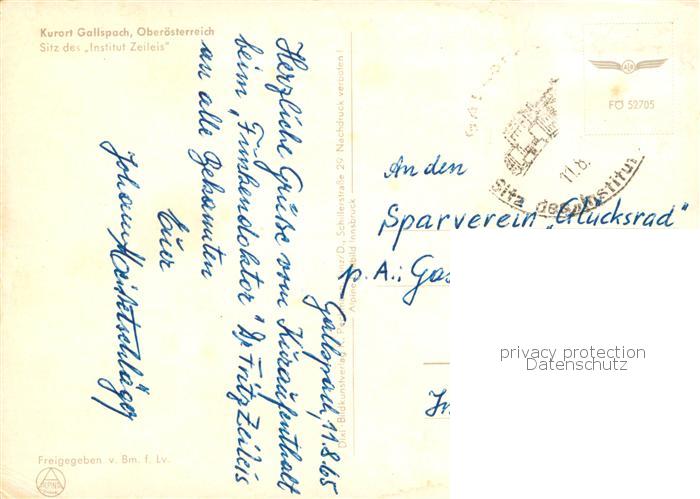 Kurort Gallspach, Oberösterreich
Sitz des „Institut Zeileis"
Gallspach, 11.8.65
Herzliche Grüße vom Kuraufenthalt
beim „Funkendoktor" Dr Fritz Zeileis
an alle Bekannten
Euer
Johann
Freigegeben v. Bm. f. Lv.
ALPINE
Schillerstraße 29 Nachdruck verboten!
Innsbruck
FO 52705
11.8.
Sitz des Institut
An den
Sparverein „Glücksrad"
p. A.: Gas
privacy protection
Datenschutz